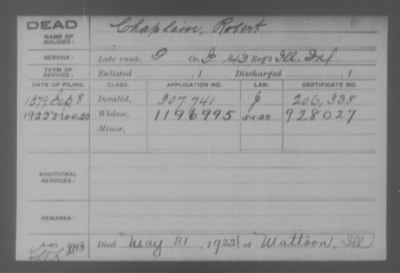 DEAD
NAME OF SOLDIER: Chaplain, Robert
SERVICE: Late rank, P Co. 143 Reg't Ill. Inf
TERM OF SERVICE: Enlisted , 1 Discharged , 1
DATE OF FILING. CLASS. APPLICATION NO. LAW. CERTIFICATE NO.
1879 Feb 8 Invalid, 307741 206,338
1922 Nov. 20 Widow, 1196995 928027
Minor,
ADDITIONAL SERVICES:
REMARKS:
Died May 31, 1922 at Mattoon, Ill